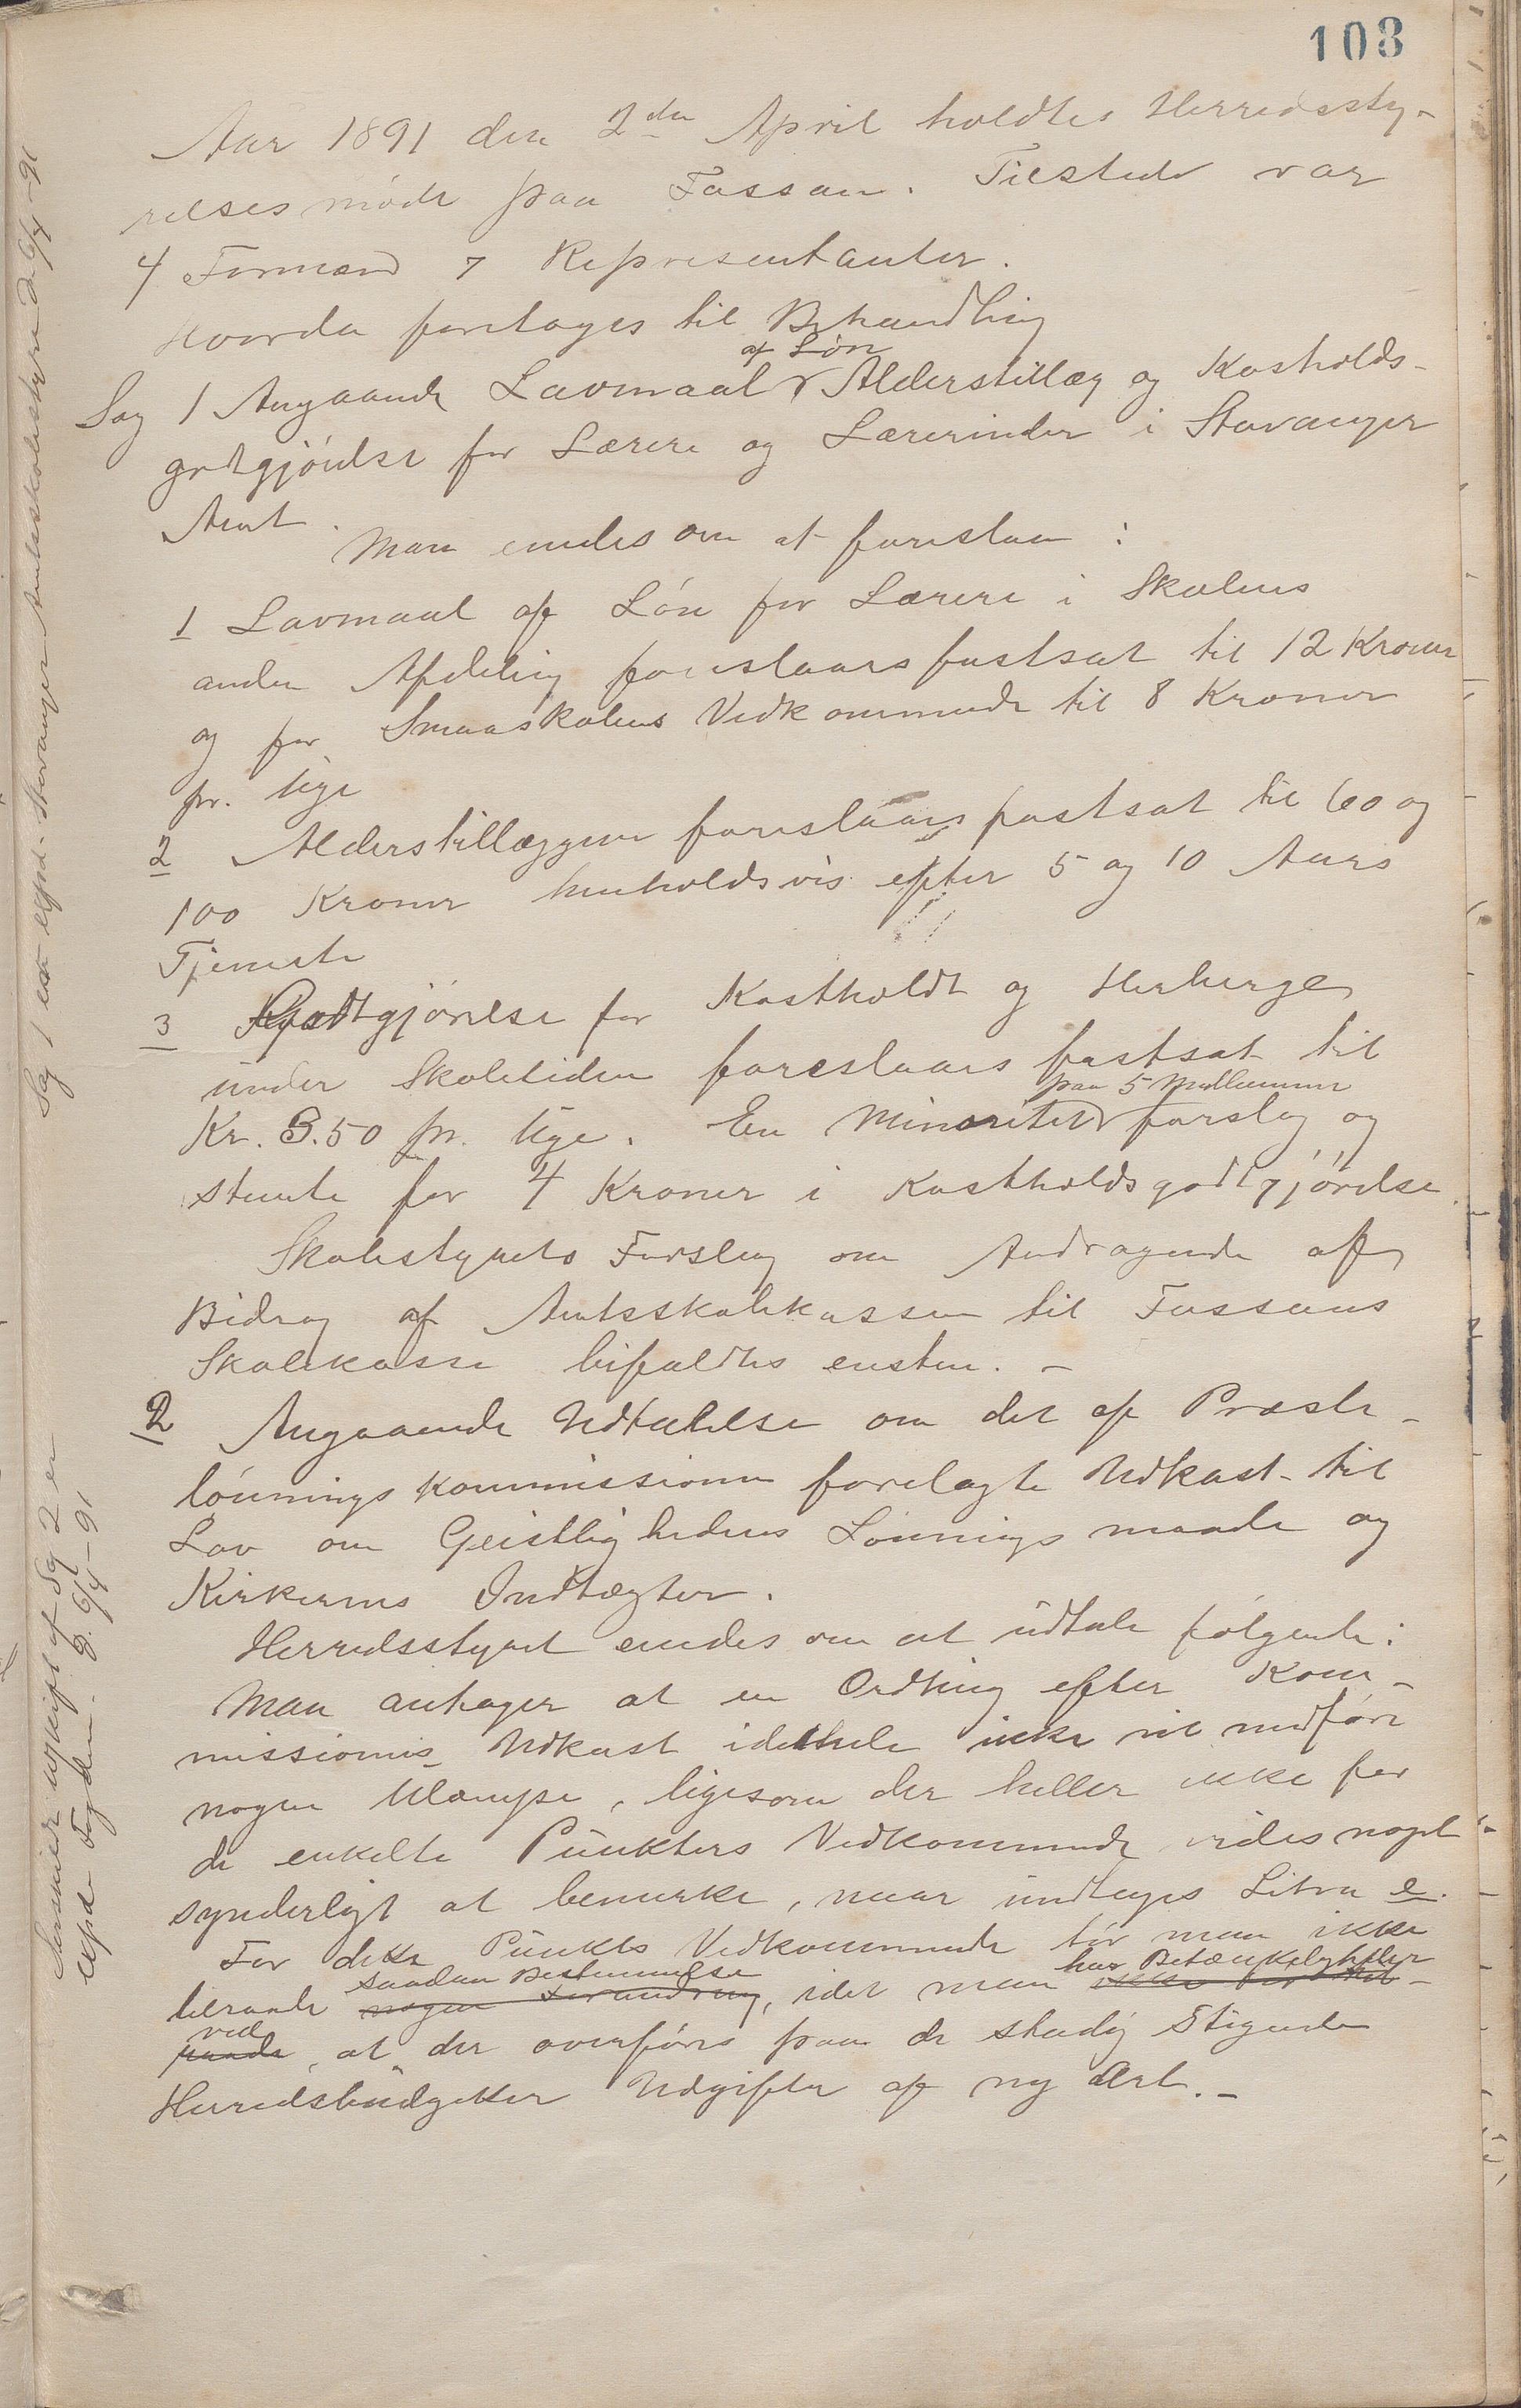 103
Aar 1891 den 2den April holdtes Herredssty-
relsesmøde paa Fossan. Tilstede var
4 Formænd 7 Repræsentanter.
Hvorda foretoges til Behandling
af Løn
Sag 1 Angaaende Lavmaal Alderstillæg og Kostholds-
godtgjørelse for Lærere og Lærerinder i Stavanger
Amt.
Man enedes om at foreslaa :
1 Lavmaal af Løn for Lærere i Skolens
anden Afdeling foreslaaes fastsat til 12 Kroner
og for Smaaskolens Vedkommende til 8 Kroner
pr. Uge
2 Alderstillæggene foreslaaes fastsat til 60 og
100 Kroner henholdsvis efter 5 og 10 Aars
Tjeneste
3 Godtgjørelse for Kostholdt og Herberge
under Skoletiden foreslaaes fastsat til
paa 5 Medlemmer
Kr. 3.50 pr. Uge. En Minoritet forslog og
stemte for 4 Kroner i Kostholdsgodtgjørelse.
Skolestyrets Forslag om Andragende af
Bidrag af Amtsskolekassen til Fossans
Skolekasse bifaldtes enstem. -
2 Angaaende Udtalelse om det af Præste-
lønningskommissionen forelagte Udkast til
Lov om Geistlighedens Lønningsmaade og
Kirkernes Indtægter.
Herredsstyret enedes om at udtale følgende:
Man antager at en Ordning efter Kom-
missionens Udkast idethele ikke vil medføre
nogen Ulæmpe, ligesom der heller ikke for
de enkelte Punkters Vedkommende vides noget
synderligt at bemerke, naar undtages Litra e.
For dette Punkts Vedkommende tør man ikke
saadan Bestemmelse har Betænkeligheder
tilraade nogen Forandring, idet man
ved
raade, at der overføres paa de stadig Stigende
Herredsbudgetter Udgifter af ny Art. -
Sag 1 er expd. Stavanger Amtsskolestyre d. 6/4-91
udskrift af Sag 2 er
expd. Fogden d. 6/4-91